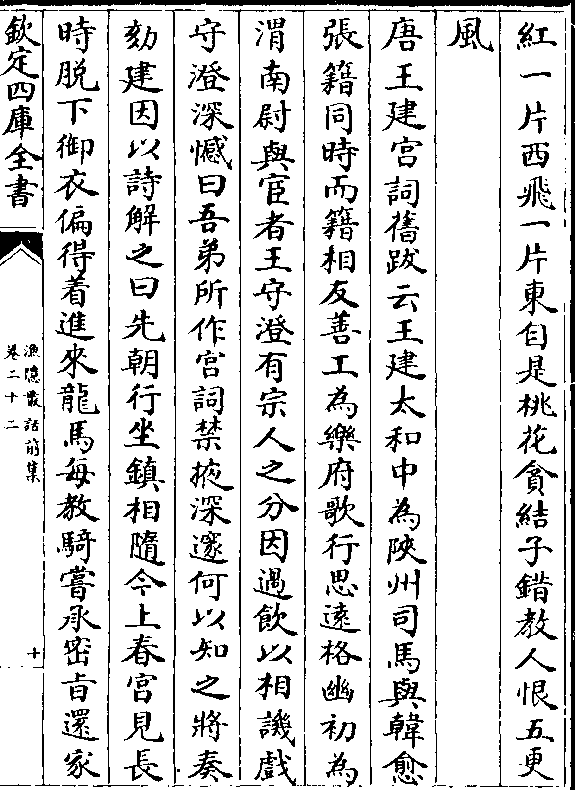 紅一片西飛一片東自是桃花貪結子錯教人恨五更
風
唐王建宮詞舊跋云王建太和中為陜州司馬與韓愈
張籍同時而籍相友善工為樂府歌行思遠格幽初為
渭南尉與宦者王守澄有宗人之分因過飲以相譏戲
守澄深憾曰吾弟所作宮詞禁掖深邃何以知之將奏
劾建因以詩解之曰先朝行坐鎮相隨今上春宮見長
時脫下御衣偏得着進來龍馬每教騎嘗承密旨還家
欽定四庫全書
漁隱叢話前集
卷二十二
十